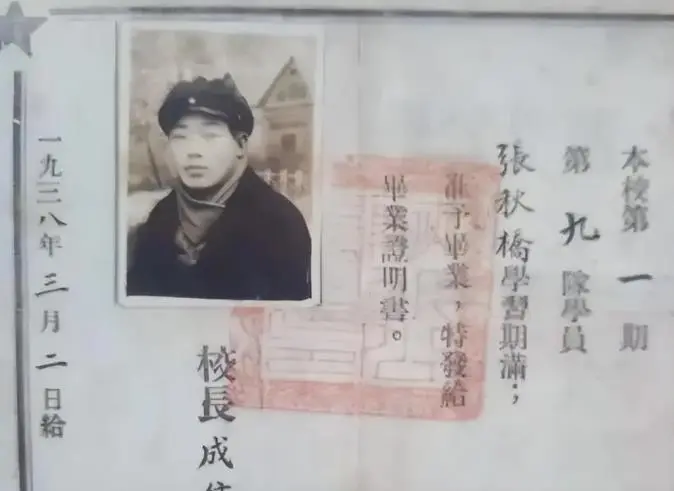 本校第一期
第九隊學員
張秋橋學習期滿，
准予畢業，特發給
畢業證明書。
校長成
一九三八年三月二日給